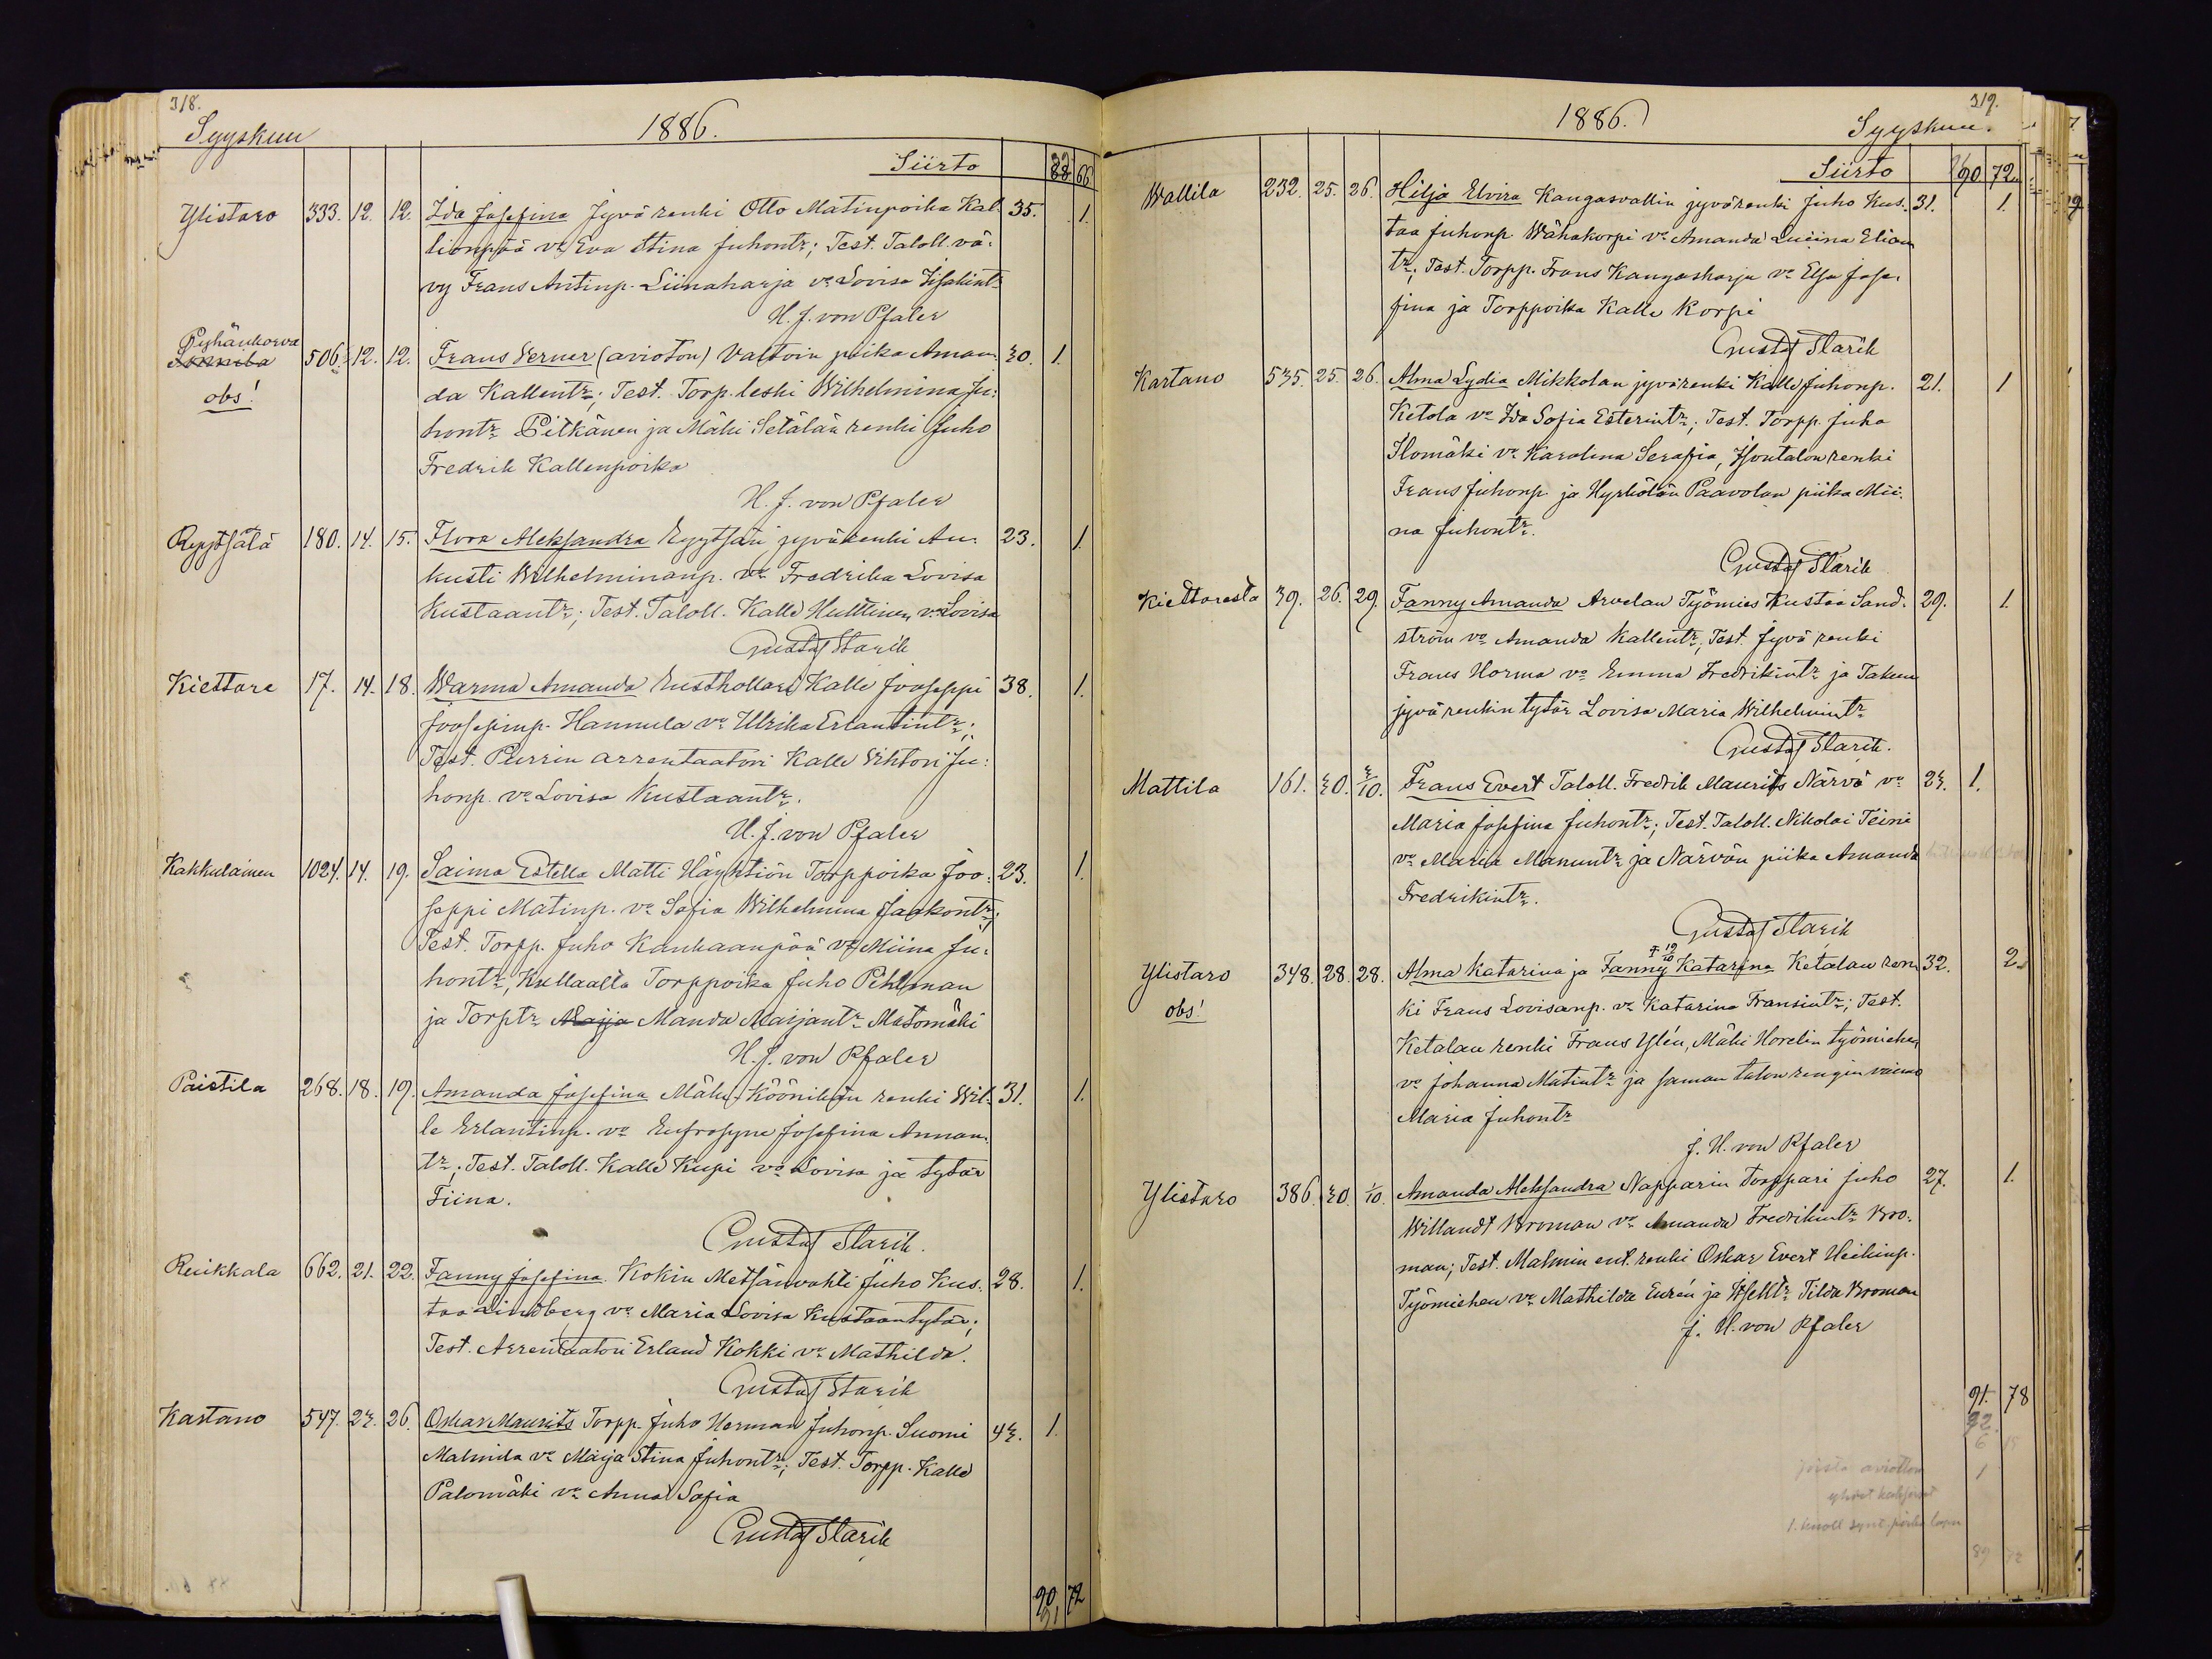 318.
Syyskuu 1886.
Siirto 88 66
Ylistaro 333. 12. 12. Ida Josefina Jyvärenki Otto Matinpoika Kal- 35. 1.
lionpää vo Eva Stina Juhontr; Test. Taloll. vä-
vy Frans Antinp. Liinaharja vo Lovisa Iisakintr
H. J. von Pfaler
Pyhänkorva
506. 12. 12. Frans Verner (avioton) Valtoin piika Aman- 30. 1.
obs! da Kallentr; Test. Torp. leski Wilhelmina Ju-
hontr Pitkänen ja Mäki Setälän renki Juho
Fredrik Kallenpoika
H. J. von Pfaler
Ryytsälä 180. 14. 15. Flora Aleksandra Ryytsäri jyvärenki Au- 23. 1.
kusti Wilhelminanp. vo Fredrika Lovisa
Kustaantr; Test. Taloll. Kalle Huttinen vo Lovisa
Gustaf Starik
Kiettare 17. 14. 18. Warma Amanda Rusthollari Kalle Jooseppi 38. 1.
Joosepinp. Hannula vo Ulrika Erlantintr;
Test. Purrin arrentaatori Kalle Vihtori Ju-
honp. vo Lovisa Kustaantr.
H. J. von Pfaler
Kakkulainen 1024. 14. 19. Saima Estella Matti Häyhtiön Torppoika Joo- 23. 1.
seppi Matinp. vo Sofia Wilhelmina Jaakontr;
Test. Torpp. Juho Kankaanpää vo Miina Ju-
hontr, Kullaalla Torppoika Juho Pehlman
ja Torptr Maija Manda Maijantr Matomäki
H. J. von Pfaler
Paistila 268. 18. 19. Amanda Josefina Mäki Köönikän renki Wil- 31. 1.
le Erlantinp. vo Eufrosyne Josefina Annan-
tr; Test. Taloll. Kalle Kupi vo Lovisa ja tytär
Fiina.
Gustaf Starik.
Ruikkala 662. 21. 22. Fanny Josefina Kokin Metsänvahti Juho Kus- 28. 1.
taa Lindberg vo Maria Lovisa Kustaantytär;
Test. Arrentaatori Erland Kokki vo Mathilda.
Gustaf Starik
Kartano 547. 23. 26. Oskar Maurits Torpp. Juho Herman Juhonp. Suomi 43. 1.
Malmila vo Maija Stina Juhontr; Test. Torpp. Kalle
Palomäki vo Anna Sofia
Gustaf Starik
90 72
91
319.
1886. Syyskuu.
Siirto 90 72
Wallila 232. 25. 26. Hilja Elvira Kangasvallin jyvärenki Juho Kus- 31. 1.
taa Juhonp. Wähäkorpi vo Amanda Luciina Elian
tr; Test. Torpp. Frans Kangasharju vo Elsa Jose-
fina ja Torppoika Kalle Korpi
Gustaf Starik
Kartano 535. 25. 26. Alma Lydia Mikkolan jyvärenki Kalle Juhonp. 21. 1
Ketola vo Ida Sofia Esterintr; Test. Torpp. Juho
Ilomäki vo Karolina Serafia, Isontalon renki
Frans Juhonp. ja Hyrkölän Paavolan piika Mii-
na Juhontr.
Gustaf Starik
Kiettaresta 39. 26. 29. Fanny Amanda Arvelan Työmies Kustaa Sand- 29. 1.
ström vo Amanda Kallentr; Test. Jyvärenki
Frans Horma vo Emma Fredrikintr ja Takun
jyvärenkin tytär Lovisa Maria Wilhelmintr
Gustaf Starik.
Mattila 161. 30. 3/10. Frans Evert Taloll. Fredrik Maurits Närvä vo 23. 1.
Maria Josefina Juhontr; Test. Taloll. Nikolai Teini
vo Maria Manuntr ja Närvän piika Amanda
Fredrikintr.
Gustaf Starik
† 19/10
Ylistaro 348. 28. 28. Alma Katarina ja Fanny Katarina Ketalan ren- 32. 2.
obs! ki Frans Lovisanp. vo Katarina Fransintr; Test.
Ketalan renki Frans Ylén, Mäki Horelin työmiehen
vo Johanna Matintr ja saman talon rengin vaimo
Maria Juhontr
J. H. von Pfaler
Ylistaro 386. 30. 1/10. Amanda Aleksandra Napparin torppari Juho 27. 1.
Willandt Broman vo Amanda Fredrikintr Bro-
man; Test. Malmin ent. renki Oskar Evert Heikinp.
Työmiehen vo Mathilda Eurén ja Itsell.tr Tilda Broman
J. H. von Pfaler
91. 78
92.
6
joista aviottom 1
89 72